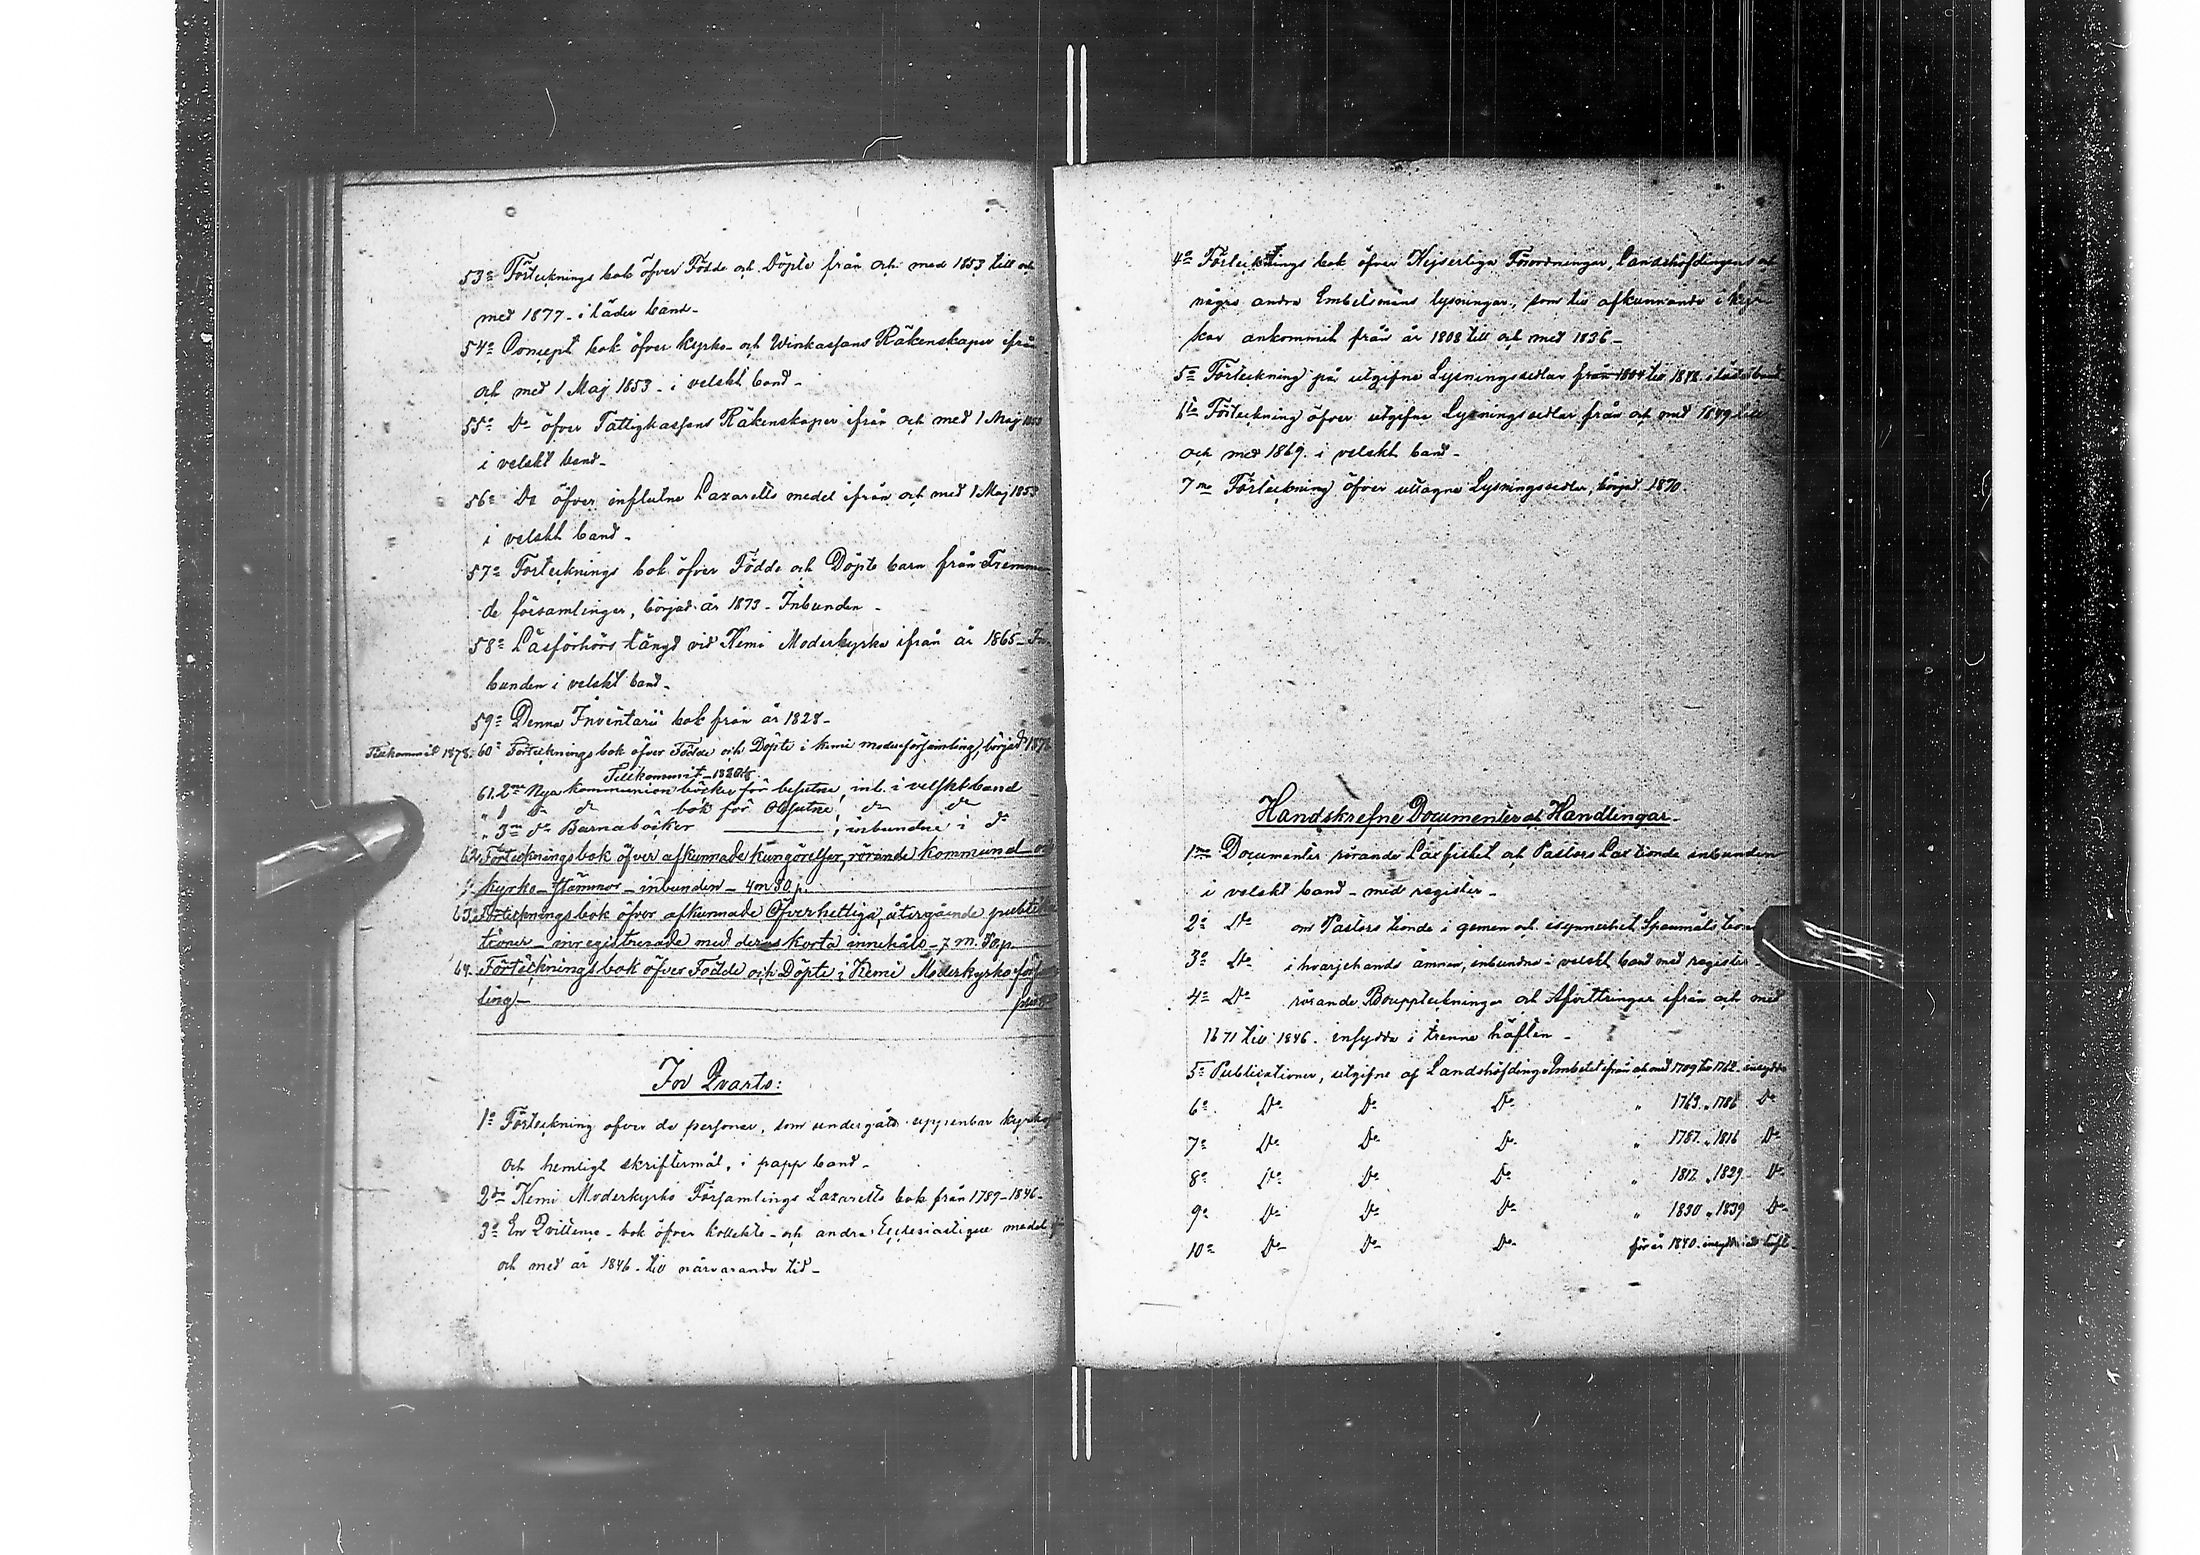 53o Förtecknings bok öfver Födde och Döpte från och med 1853 till och
med 1877 - i läder band -
54o Concept bok öfver kyrko- och Winkassans Räkenskaper ifrån
och med 1 Maj 1853 - i velskt band -
55o Do öfver Fattigkassans Räkenskaper ifrån och med 1 Maj 1853
i velskt band -
56o Do öfver influtne Lazaretts medel ifrån och med 1 Maj 1853
i velskt band -
57o Förtecknings bok öfver Födde och Döpte barn från Fremman
de församlingar, börjad år 1873 - Inbunden -
58o Läsförhörs längd vid Kemi Moderkyrka ifrån år 1865 - In-
bunden i velskt band -
59o Denna Inventarii bok från år 1828 -
Tillkommit 1878: 60o Förtecknings bok öfver Födde och Döpte i Kemi moderförsamling, börjad 1878
Tillkommit - 1880
61. 2ne Nya kommunion böcker för besutne, inb. i velskt band
" 1 do do " bok för Obesutne, do do
" 3ne do Barnaböcker ———, inbundne i do
62 Förtecknings bok öfver afkunnade kungörelser, rörande kommunal och
kyrko-stämmor - inbunden - 4 m 50 p.
63 Förtecknings bok öfver afkunnade Öfverhetliga, återgående publika
tioner - inregistrerade med deras korta innehåls - 7 m. 50 p.
64. Förtecknings bok öfver Födde och Döpte i Kemi Moderkyrko försam
ling -
In Qvarto:
1o Förteckning öfver de personer, som undergått uppenbar kyrko
och hemligt skriftermål, i papp band -
2do Kemi Moderkyrko Församlings Lazaretts bok från 1789-1846 -
3o En Qvittence - bok öfver kollekte - och andra Ecclesiastique medel
och med år 1846 till närvarande tid -
4o Förtecknings bok öfver Kejserliga Förordningar, Landshöfdingens och
några andra Embetsmäns lysningar, som till afkunnande i kyr
kor ankommit från år 1808 till och med 1836 -
5o Förteckning på utgifne Lysningssedlar från 1804 till 1848 i läderband
6to Förteckning öfver utgifne Lysningssedlar från och med 1849 till
och med 1869. i velskt band -
7mo Förteckning öfver uttagne Lysningssedlar, börjad 1870.
Handskrefne Documenter och Handlingar -
1mo Documenter rörande Laxfisket och Pastors Lax tionde inbunden
i velskt band - med register -
2o Do om Pastors tionde i gemen och isynnerhet Spanmåls
3o Do i hvarjehanda ämnen, inbundne i velskt band med register
4o Do rörande Bouppteckningar och Afvittringar ifrån och med
1671 till 1846. insydde i trenne häften -
5o Publicationer, utgifne af Landshöfdinge Embetet ifrån och med 1709 till 1762. insydde
6o Do Do Do " 1763 " 1786 Do
7o Do Do Do " 1787 " 1816 Do
8o Do Do Do " 1817 " 1829 Do
9o Do Do Do " 1830 " 1839 Do
10o Do Do Do för år 1840. insydde i ett häfte -